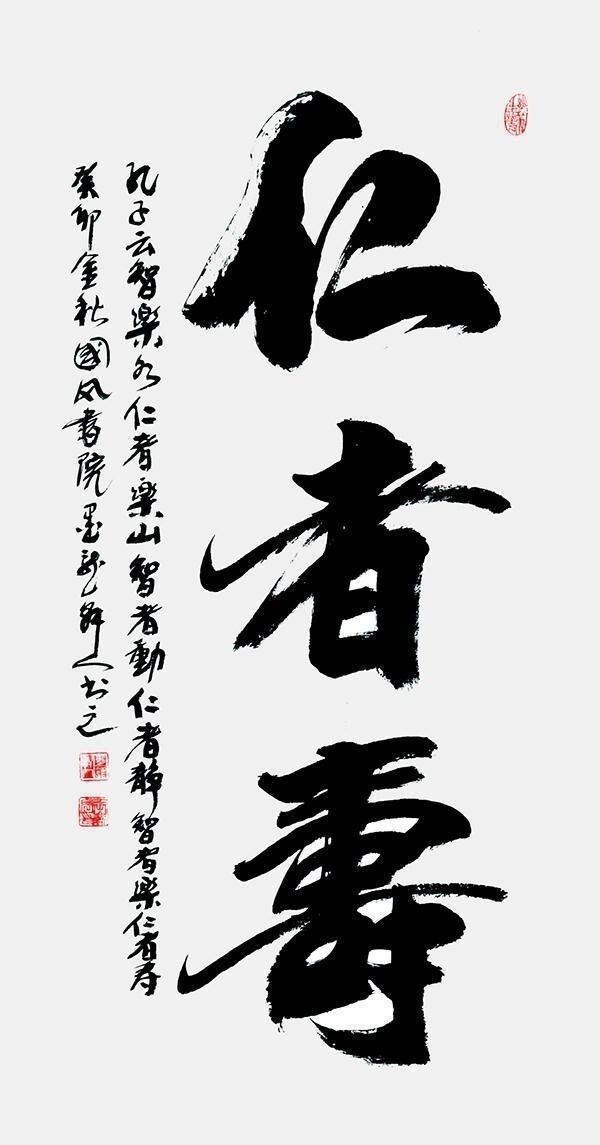 仁者壽
孔子云智樂水仁者樂山智者動仁者靜智者樂仁者寿
癸卯金秋國风書院墨龍山人书之